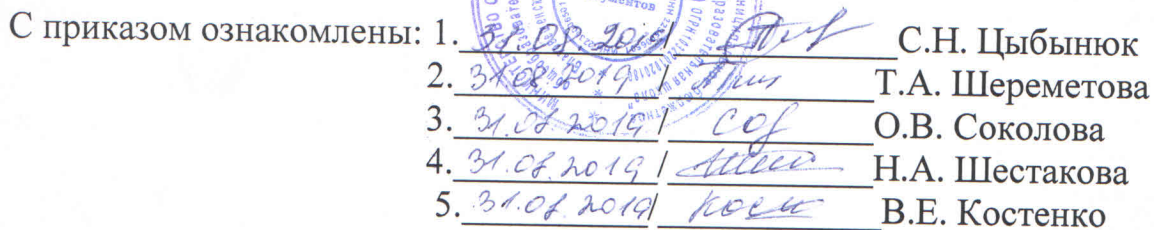 С приказом ознакомлены: 1. 31.08.2019 / С.Н. Цыбынюк
2. 31.08.2019 / Т.А. Шереметова
3. 31.08.2019 / О.В. Соколова
4. 31.08.2019 / Н.А. Шестакова
5. 31.08.2019/ В.Е. Костенко